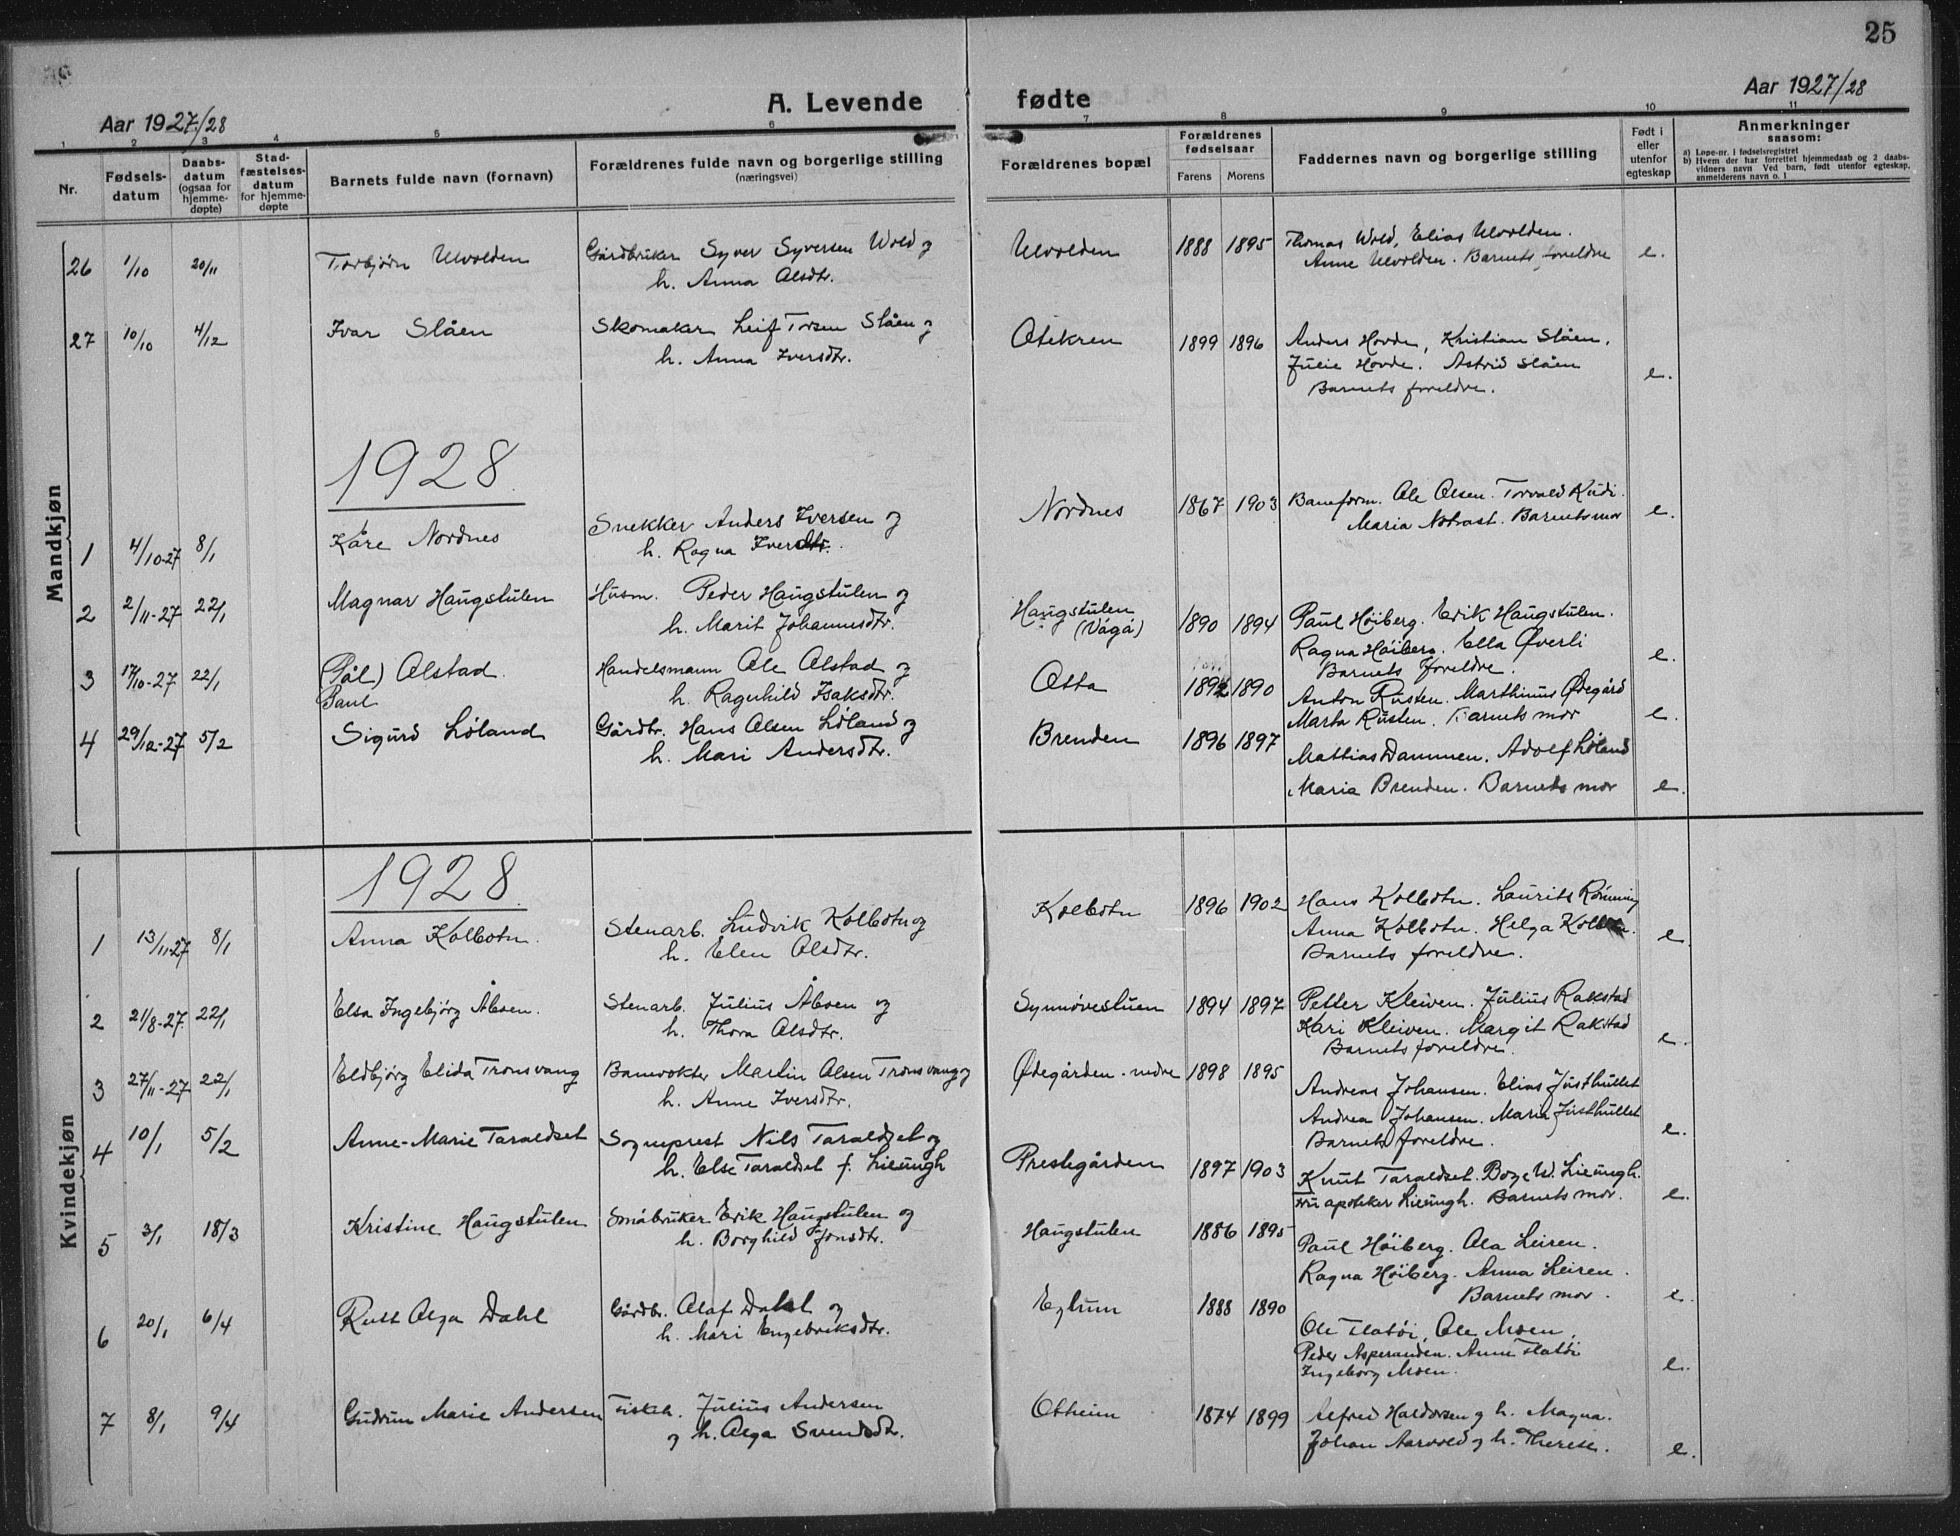 25
Aar 1927/28
A. Levende fødte
Aar 1927/28
1 2 3 4 5 6 7 8 9 10 11
Nr.
Fødsels-
datum
Daabs-
datum
(ogsaa for
hjemme-
døpte)
Stad-
fæstelses-
datum
for hjemme-
døpte
Barnets fulde navn (fornavn)
Forældrenes fulde navn og borgerlige stilling
(næringsvei)
Forældrenes bopæl
Forældrenes
fødselsaar
Farens Morens
Faddernes navn og borgerlige stilling
Født i
eller
utenfor
egteskap
Anmerkninger
saasom:
a) Løpe-nr. i fødselsregistret
b) Hvem der har forrettet hjemmedaab og 2 daabs-
vidners navn Ved barn, født utenfor egteskap,
anmelderens navn o. l
Mandkjøn
26 1/10 20/11 Torbjørn Ulvolden Gårdbruker Syver Syversen Wold og Ulvolden 1888 1895 Thomas Wold, Elias Ulvolden.
h. Anna Olsdtr. Anne Ulvolden. Barnets foreldre e.
27 10/10 4/12 Ivar Slåen Skomaker Leif Torsen Slåen og Otekren 1899 1896 Anders Hovde, Kristian Slåen.
h. Anna Iversdtr. Julie Hovde. Astrid Slåen
Barnets foreldre. e.
1928
1 4/10-27 8/1 Kåre Nordnes Snekker Anders Iversen og Nordnes 1867 1903 Baneform. Ole Olsen. Torvald Rudi.
h. Ragna Iversdtr. Maria. Barnets mor e.
2 2/11-27 22/1 Magnar Haugstulen Husm. Peder Haugstulen og Haugstulen 1890 1894 Paul Høiberg. Erik Haugstulen.
h. Marit Johannesdtr. (Vågå) Ragna Høiberg. Ella Øverli
Barnets foreldre. e.
3 17/10-27 22/1 (Pål) Olstad. Handelsmann Ole Olstad og Otta 1890 Anton Rusten. Marthinus Ødegård
Paul h. Ragnhild Isaksdtr. Marta Rusten. Barnets mor e.
4 29/12-27 5/2 Sigurd Løland Gårdbr. Hans Olsen Løland og Brenden 1896 1897 Mattias Dammen. Adolf Løland
h. Mari Andersdtr. Maria Brenden. Barnets mor e.
Kvindekjøn
1928
1 13/11-27 8/1 Anna Kolbotn. Stenarb. Ludvik Kolbotn og Kolbotn 1896 1902 Hans Kolbotn. Laurits Rønning
h. Elen Olsdtr. Anna Kolbotn. Helga Kolbotn. e.
Barnets foreldre.
2 21/8-27 22/1 Elsa Ingebjørg Åbsen. Stenarb. Julius Åbsen og Synnøvestuen 1894 1897 Petter Kleiven. Julius Rakstad
h. Thora Olsdtr. Kari Kleiven. Margit Rakstad
Barnets foreldre. e.
3 27/11-27 22/1 Eldbjørg Elida Tronsvang Banevokter Martin Olsen Tronsvang og Ødegården nedre 1898 1895 Andreas Johansen. Elias Justhullet
h. Anne Iversdtr. Andrea Johansen. Maria Justhullet
Barnets foreldre. e.
4 10/1 5/2 Anne-Marie Taraldset Sogneprest Nils Taraldset og Prestegården 1897 1903 Knut Taraldset. W. Lieungh.
h. Else Taraldset f. Lieungh Fru apoteker Lieungh. Barnets mor. e.
5 3/1 18/3 Kristine Haugstulen Småbruker Erik Haugstulen og Haugstulen 1886 1895 Paul Høiberg. Ola Leiren.
h. Borghild Jonsdtr. Ragna Høiberg. Anna Leiren.
Barnets mor. e.
6 20/1 6/4 Rutt Olga Dahl Gårdbr. Olaf Dahl og Eglum 1888 1890 Ole Flatøi, Ole Moen,
h. Mari Engebriksdtr. Peder Asperanden. Anne Flatøi
Ingeborg Moen. e.
7 8/1 9/4 Gudrun Marie Andersen Fiskeh. Julius Andersen Ottheim 1874 1899 Alfred Haldorsen og h. Magna.
og h. Olga Svendsdtr. Johan Aarvold og h. Therese. e.